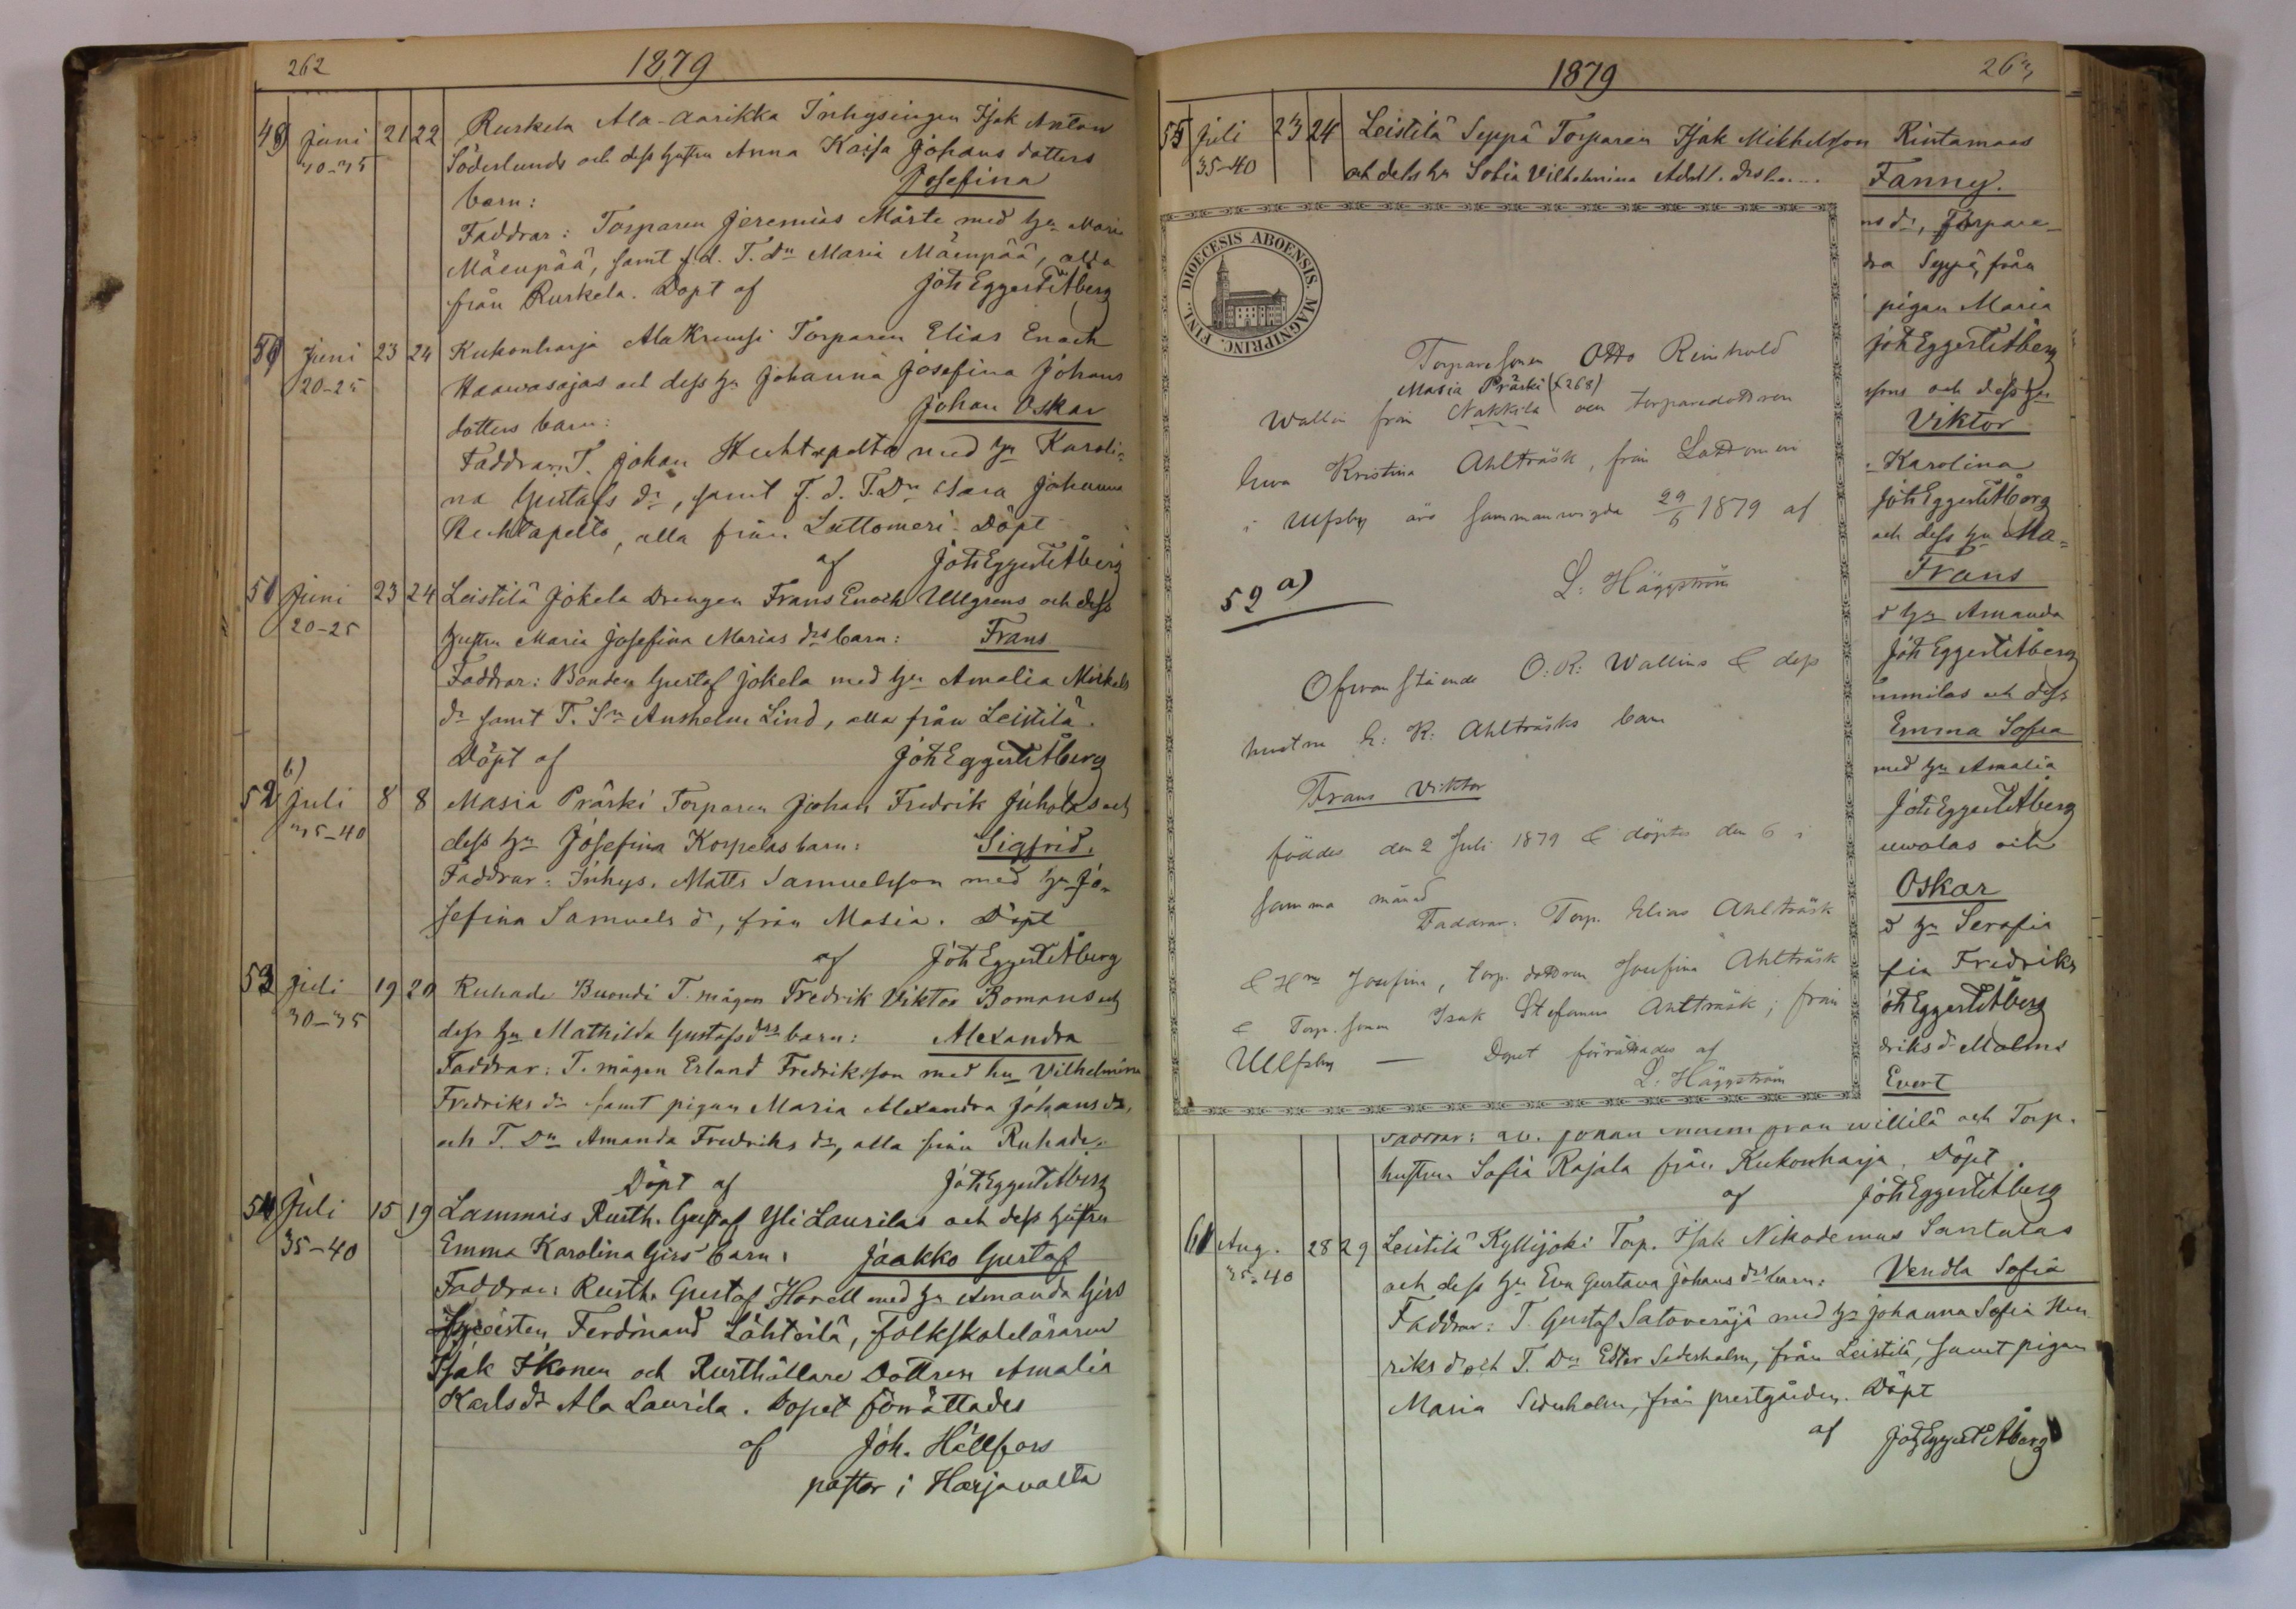 262
1879
49 Juni 21 22 Ruskela Ala-Aarikka Inhysingen Isak Anton
30-35 Söderlunds och dess hustru Anna Kaisa Johans dotters
barn: Josefina
Faddrar: Torparen Jeremias Mårte med hu Maria
Mäenpää, samt f.d. T. dn Maria Mäenpää, alla
från Ruskela. Döpt af Joh Eggert Åberg
50 Juni 23 24 Kukonharja Ala Kruusi Torparen Elias Enoch
20-25 Haawasojas och dess hu Johanna Josefina Johans
dotters barn: Johan Oskar
Faddrar: T. Johan Huhtapelto med hu Karoli-
na Gustafs dr, samt f. d. T. Dn Sara Johanna
Huhtapelto, alla från Lattomeri. Döpt
af Joh Eggert Åberg
51 Juni 23 24 Leistilä Jokela Drengen Frans Enoch Ullgrens och dess
20-25 hustru Maria Josefina Marias drs barn: Frans
Faddrar: Bonden Gustaf Jokela med hu Amalia Mickels
dr samt T. Sn Anshelm Lind, alla från Leistilä.
Döpt af Joh Eggert Åberg
b)
52 Juli 8 8 Masia Prärki Torparen Johan Fredrik Juholas och
35-40 dess hu Josefina Korpelas barn: Sigfrid.
Faddrar: Inhys. Matts Samuelsson med hu Jo-
sefina Samuels dr, från Masia. Döpt
af Joh Eggert Åberg
53 Juli 19 20 Ruhade Buondi T. mågen Fredrik Viktor Bomans och
30-35 dess hu Mathilda Gustafs drs barn: Alexandra
Faddrar: T. mågen Erland Fredriksson med hu Vilhelmina
Fredriks dr samt pigan Maria Alexandra Johans dr,
och T. Dn Amanda Fredriks dr, alla från Ruhade.
Döpt af Joh Eggert Åberg
54 Juli 15 19 Lammais Rusth. Gustaf Yli Laurilas och dess hustru
35-40 Emma Karolina Girs barn: Jaakko Gustaf
Faddrar: Rusth. Gustaf Horell med hu Amanda Girs
Ferdinand Lähteilä, folkskoleläraren
Isak Ikonen och Rusthållare Dottren Amalia
Karlsdr Ala Laurila. Dopet förrättades
af Joh. Hällfors
pastor i Harjavalta
1879
263
55 Juli 23 24 Leistilä Seppä Torparen Isak Mikkelsson Rintamaas
35-40 och dess hu Sofia Vilhelmina Adolf. drs Fanny.
DIOECESIS ABOENSIS. MAGNI PRINC. FINL.
Torparesonen Otto Reinhold
Masia Prärki (268)
Wallin från Nakkila och torparedottren
Ewa Kristina Ahlträsk, från Lattomeri
i Ulfsby äro sammanvigda 29/6 1879 af
L: Häggström
52 a)
Ofvanstående O: R: Wallins & dess
hustru E: K: Ahlträsks barn
Frans Viktor
föddes den 2 Juli 1879 & döptes den 6 i
samma månad
Faddrar: Torp. Elias Ahlträsk
& Hru Josefina, torp. dottren Josefina Ahlträsk
& Torp. sonen Isak Stefanus Ahlträsk; från
Ulfsby — Dopet förrättades af
L: Häggström
ns dr, Torpare-
dra Seppä, från
pigan Maria
Joh Eggert Åberg
sons och dess hu
Viktor
Karolina
Joh Eggert Åberg
och dess hu Ma-
Frans
d hu Amanda
Joh Eggert Åberg
och dess
Emma Sofia
med hu Amalia
Joh Eggert Åberg
och
Oskar
d hu Serafia
fia Fredriks
Joh Eggert Åberg
driks dr Malms
Evert
från Willilä och Torp.
hustrun Sofia Rajala från Kukonharja. Döpt
af Joh Eggert Åberg
61 Aug. 28 29 Leistilä Kyllijoki Torp. Isak Nikodemus Santalas
35-40 och dess hu Eva Gustava Johans drs barn: Vendla Sofia
Faddrar: T. Gustaf Satoveräjä med hu Johanna Sofia Hen-
riks dr och T. Dn Ester Sederholm, från Leistilä, samt pigan
Maria Sederholm, från prestgården. Döpt
af Joh Eggert Åberg